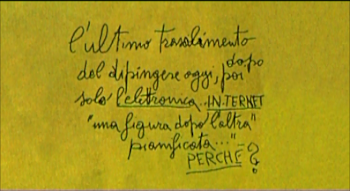 l'ultimo trasalimento
del dipingere oggi, poi dopo
solo l'elettronica INTERNET
"una figura dopo l'altra"
pianificata..."
PERCHÉ?